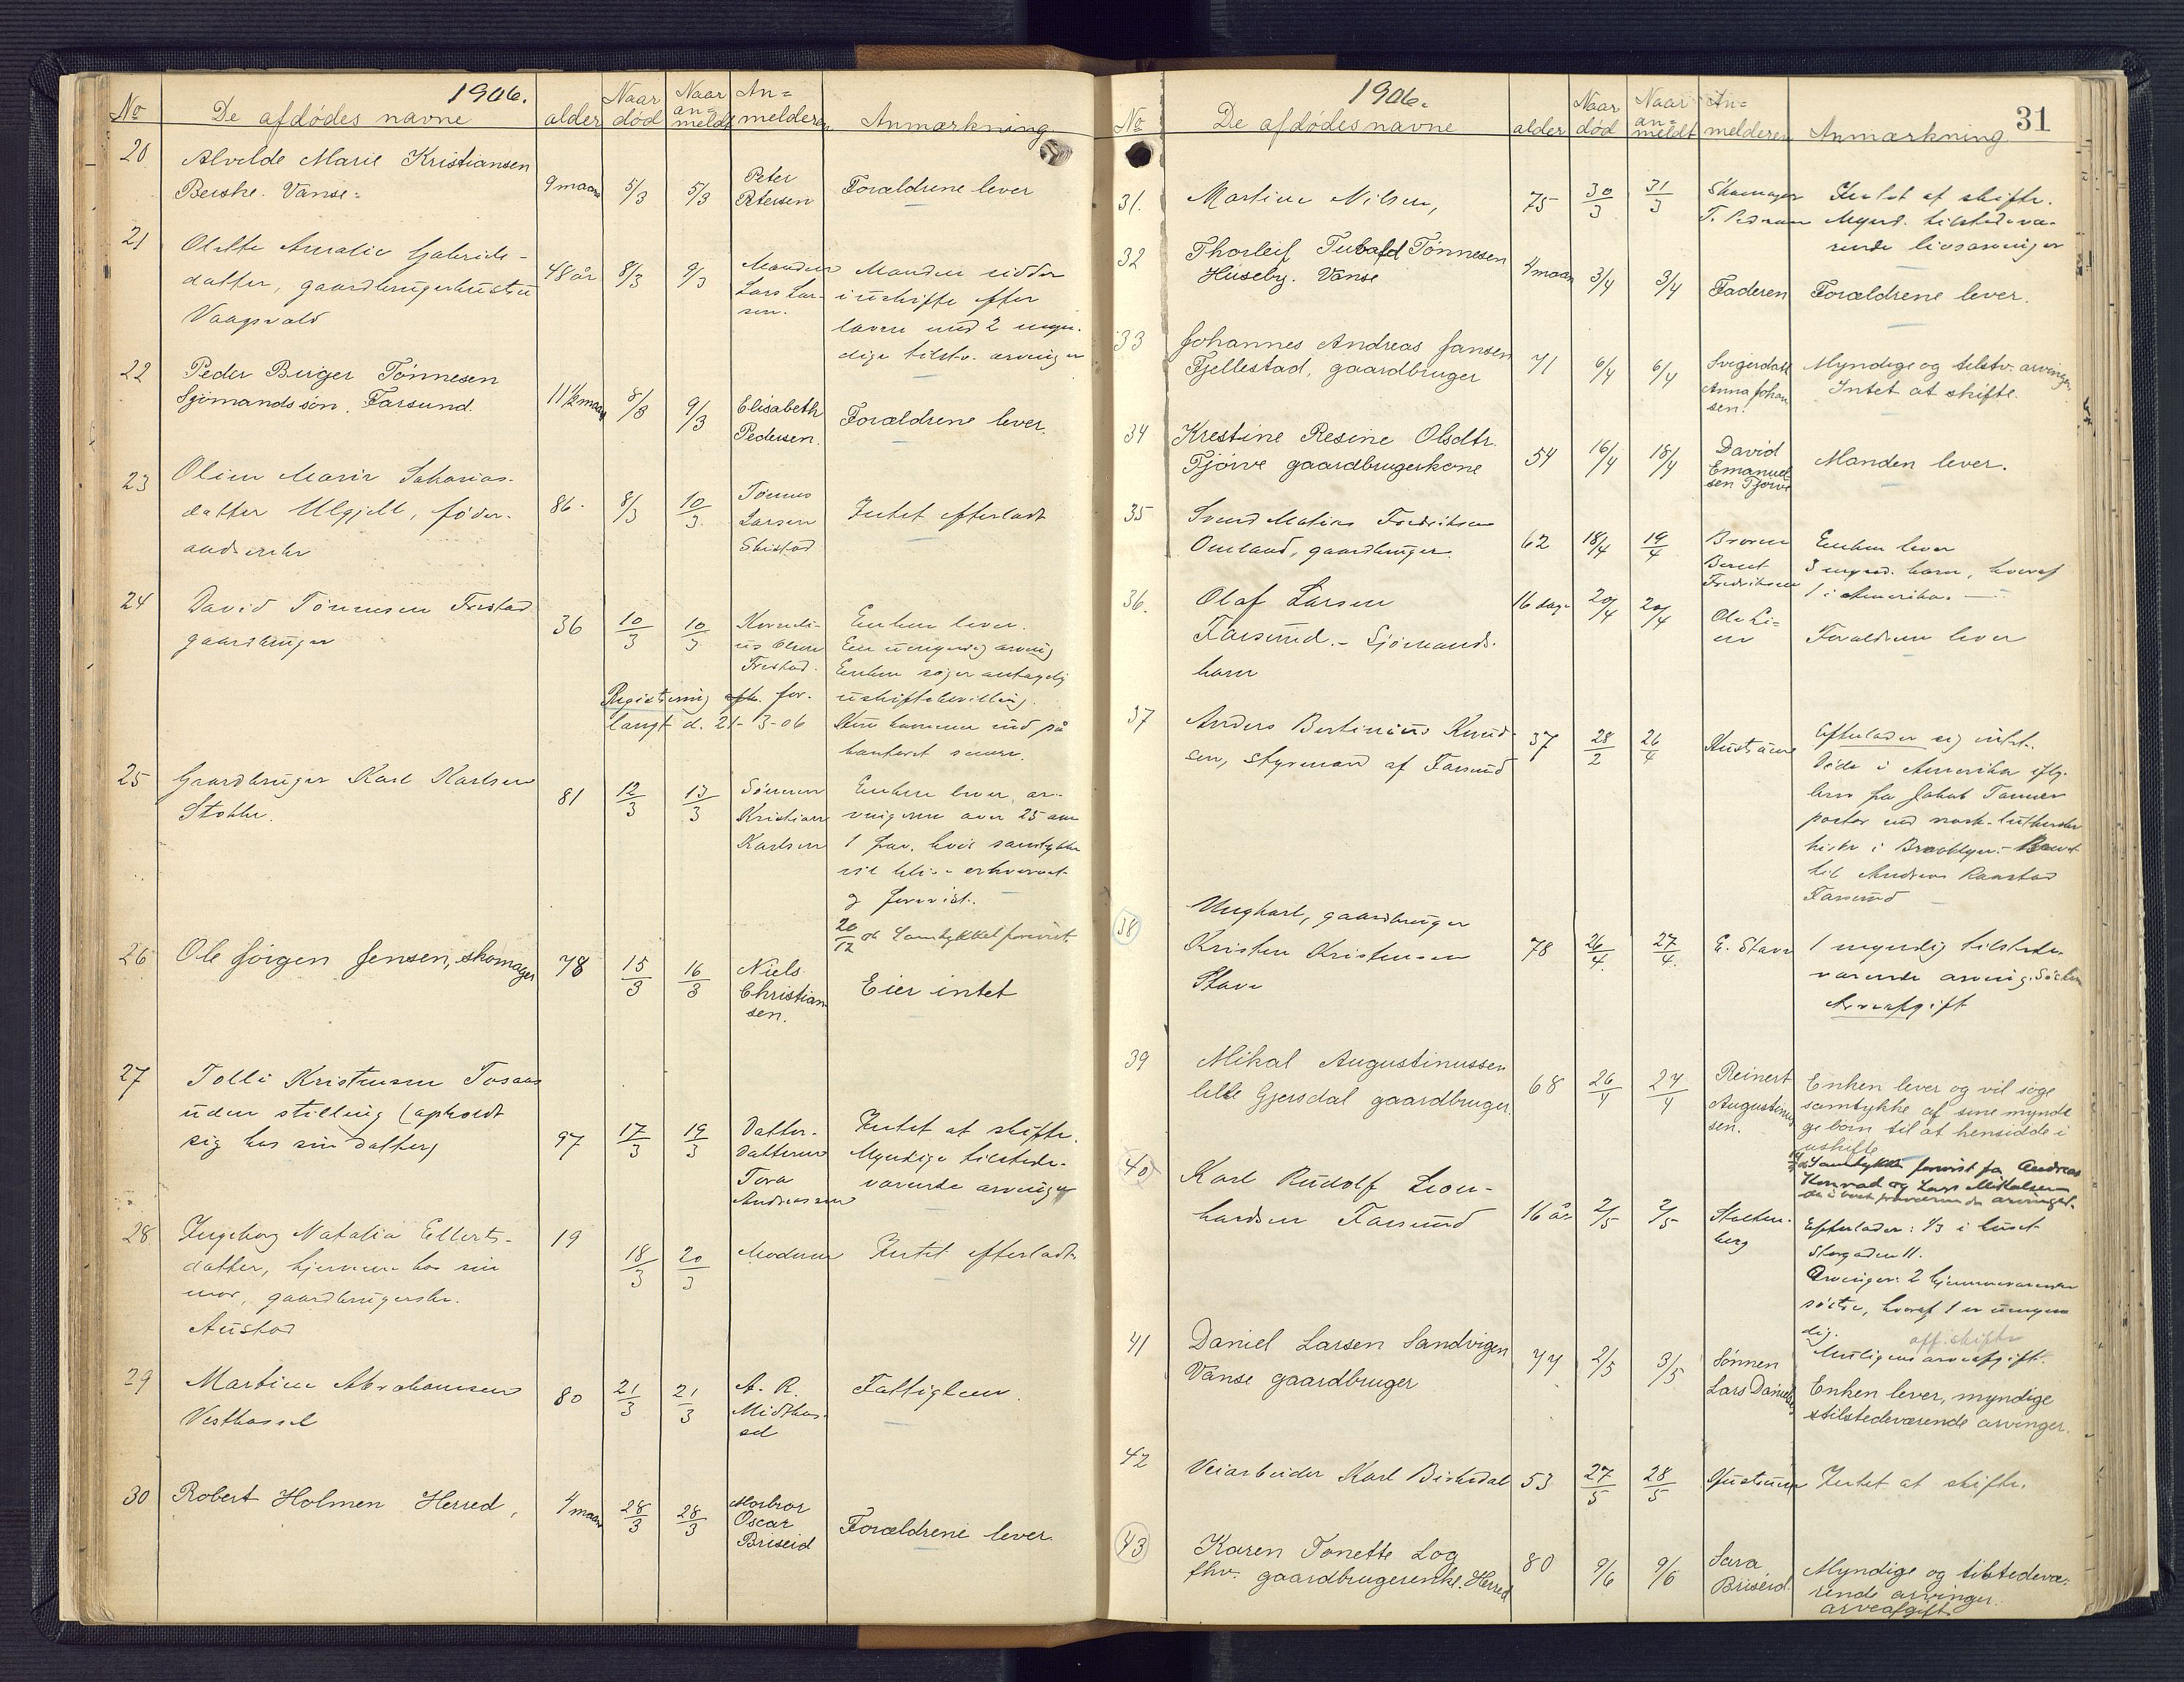 1906.
No De afdødes navne alder Naar død Naar an=meldt An=melderen Anmærkning
20 Alvilde Marie Kristiansen
Berske. Vanse. 9 maan 5/3 5/3 Peter Petersen Forældrene lever
21 Olette Amalie Gabriels-
datter, gaardbrugerhustru
Vaagsvold 48 år 8/3 9/3 Manden Lars Lar-sen. Manden sidder
i uskifte efter
loven med 2 myn-
dige tilstv. arvinger
22 Peder Birger Tönnesen
Sjömands søn. Farsund. 11 1/2 maan 8/3 9/3 Elisabeth Pedersen. Forældrene lever.
23 Oline Marie Sakarias-
datter Ulgjell, föder-
aadsenke 86. 8/3 10/3 Tönnes Larsen Skistad Intet efterladt
24 David Tönnesen Frestad
gaardbruger 36 10/3 10/3 Korneli-us Olsen Frestad. Enken lever.
Een umyndig arving
Enken søger antagelig
uskiftebevilling.
Registrering forlangt d. 21-3-06
Skm kommer ind på
kontoret senere.
25 Gaardbruger Karl Karlsen
Stokke. 81 12/3 13/3 Sönnen Kristian Karlsen Enken lever, ar-
vingerne over 25 aar
1 frav. hvis samtykke
vil bli erhvervet
og forevist.
20/12 06 Samtykket forevist.
26 Ole Jörgen Jensen, skomager 78 15/3 16/3 Niels Christian sen. Eier intet
27 Tolli Kristensen Tosaas
uden stilling (opholdt
sig hos sin datter) 97 17/3 19/3 Datter-datteren Tora Andreassen Intet at skifte.
Myndige tilstede-
værende arvinger
28 Ingeborg Natalia Ellerts-
datter, hjemme hos sin
mor, gaardbrugerske.
Austad 19 18/3 20/3 Moderen Intet efterladt.
29 Martine Abrahamsen
Vesthassel 80 21/3 21/3 A. R. Midthas-sel Fattiglem.
30 Robert Holmen Herred, 4 maan 28/3 28/3 Morbror Oscar Briseid Forældrene lever.
1906.
31
No De afdødes navne alder Naar død Naar an=meldt An=melderen Anmærkning
31. Martine Nilsen, 75 30/3 31/3 Skomager Intet at skifte.
Mynd. tilstedevæ-
rende livsarvinger
32 Thorleif Tubald Tønnesen
Huseby. Vanse 4 maan 3/4 3/4 Faderen Forældrene lever.
33 Johannes Andreas Jansen
Fjellestad, gaardbruger 71 6/4 6/4 Svigerdatt Anna Johan sen. Myndige og tilstv. arvinger.
Intet at skifte.
34 Krestine Resine Olsdtr.
Tjörve gaardbrugerkone 54 16/4 18/4 David Emanuel sen Tjörve Manden lever.
35 Svend Matias Fredriksen
Omland, gaardbruger. 62 18/4 19/4 Broren Bernt Fredriksen Enken lever
3 mynd. barn, hvoraf
1 i Amerika.
36. Olaf Larsen
Farsund. - Sjömands-
barn 16 dage 20/4 20/4 Forældrene lever
37 Anders Bertinius Knud-
sen, styrmand af Farsund 37 28/2 26/4 Hustruen Efterlader sig intet.
Døde i Amerika iflg.
brev fra Jakob Tanner
pastor ved norsk-lutherske
kirke i Brooklyn. - Brevet
til Andreas Raastad
Farsund
38 Ungkarl, gaardbruger
Kristen Kristensen
Stave 78 26/4. 27/4. E. Stave 1 myndig tilstede-
værende arving. Søsken
Arveafgift
39 Mikal Augustinussen
lille Gjersdal gaardbruger. 68 26/4 27/4 Reinert Augustinus sen. Enken lever og vil søge
samtykke af sine myndi
ge børn til at hensidde i
uskifte
Samtykke forevist fra Andreas
Konrad og Lars Mikalsen
40 Karl Rudolf Leon-
hardsen Farsund 16 år 2/5 2/5 Stolten-berg Efterlader: 1/3 i huset
Storgaden 11.
Arvinger: 2 hjemmeværende
søstre, hvoraf 1 er umyn
dig. off. skifte
Muligens arveafgift.
41 Daniel Larsen Sandvigen
Vanse gaardbruger 77 2/5 3/5 Sönnen Lars Daniels Enken lever, myndige
tilstedeværende arvinger.
42 Veiarbeider Karl Birkedal 53 27/5 28/5 Hustruen Intet at skifte.
43 Karen Tonette Log
fhv. gaardbrugerenke. Herred 80 9/6 9/6 Sara Briseid. Myndige og tilstedevæ-
rende arvinger.
arveafgift